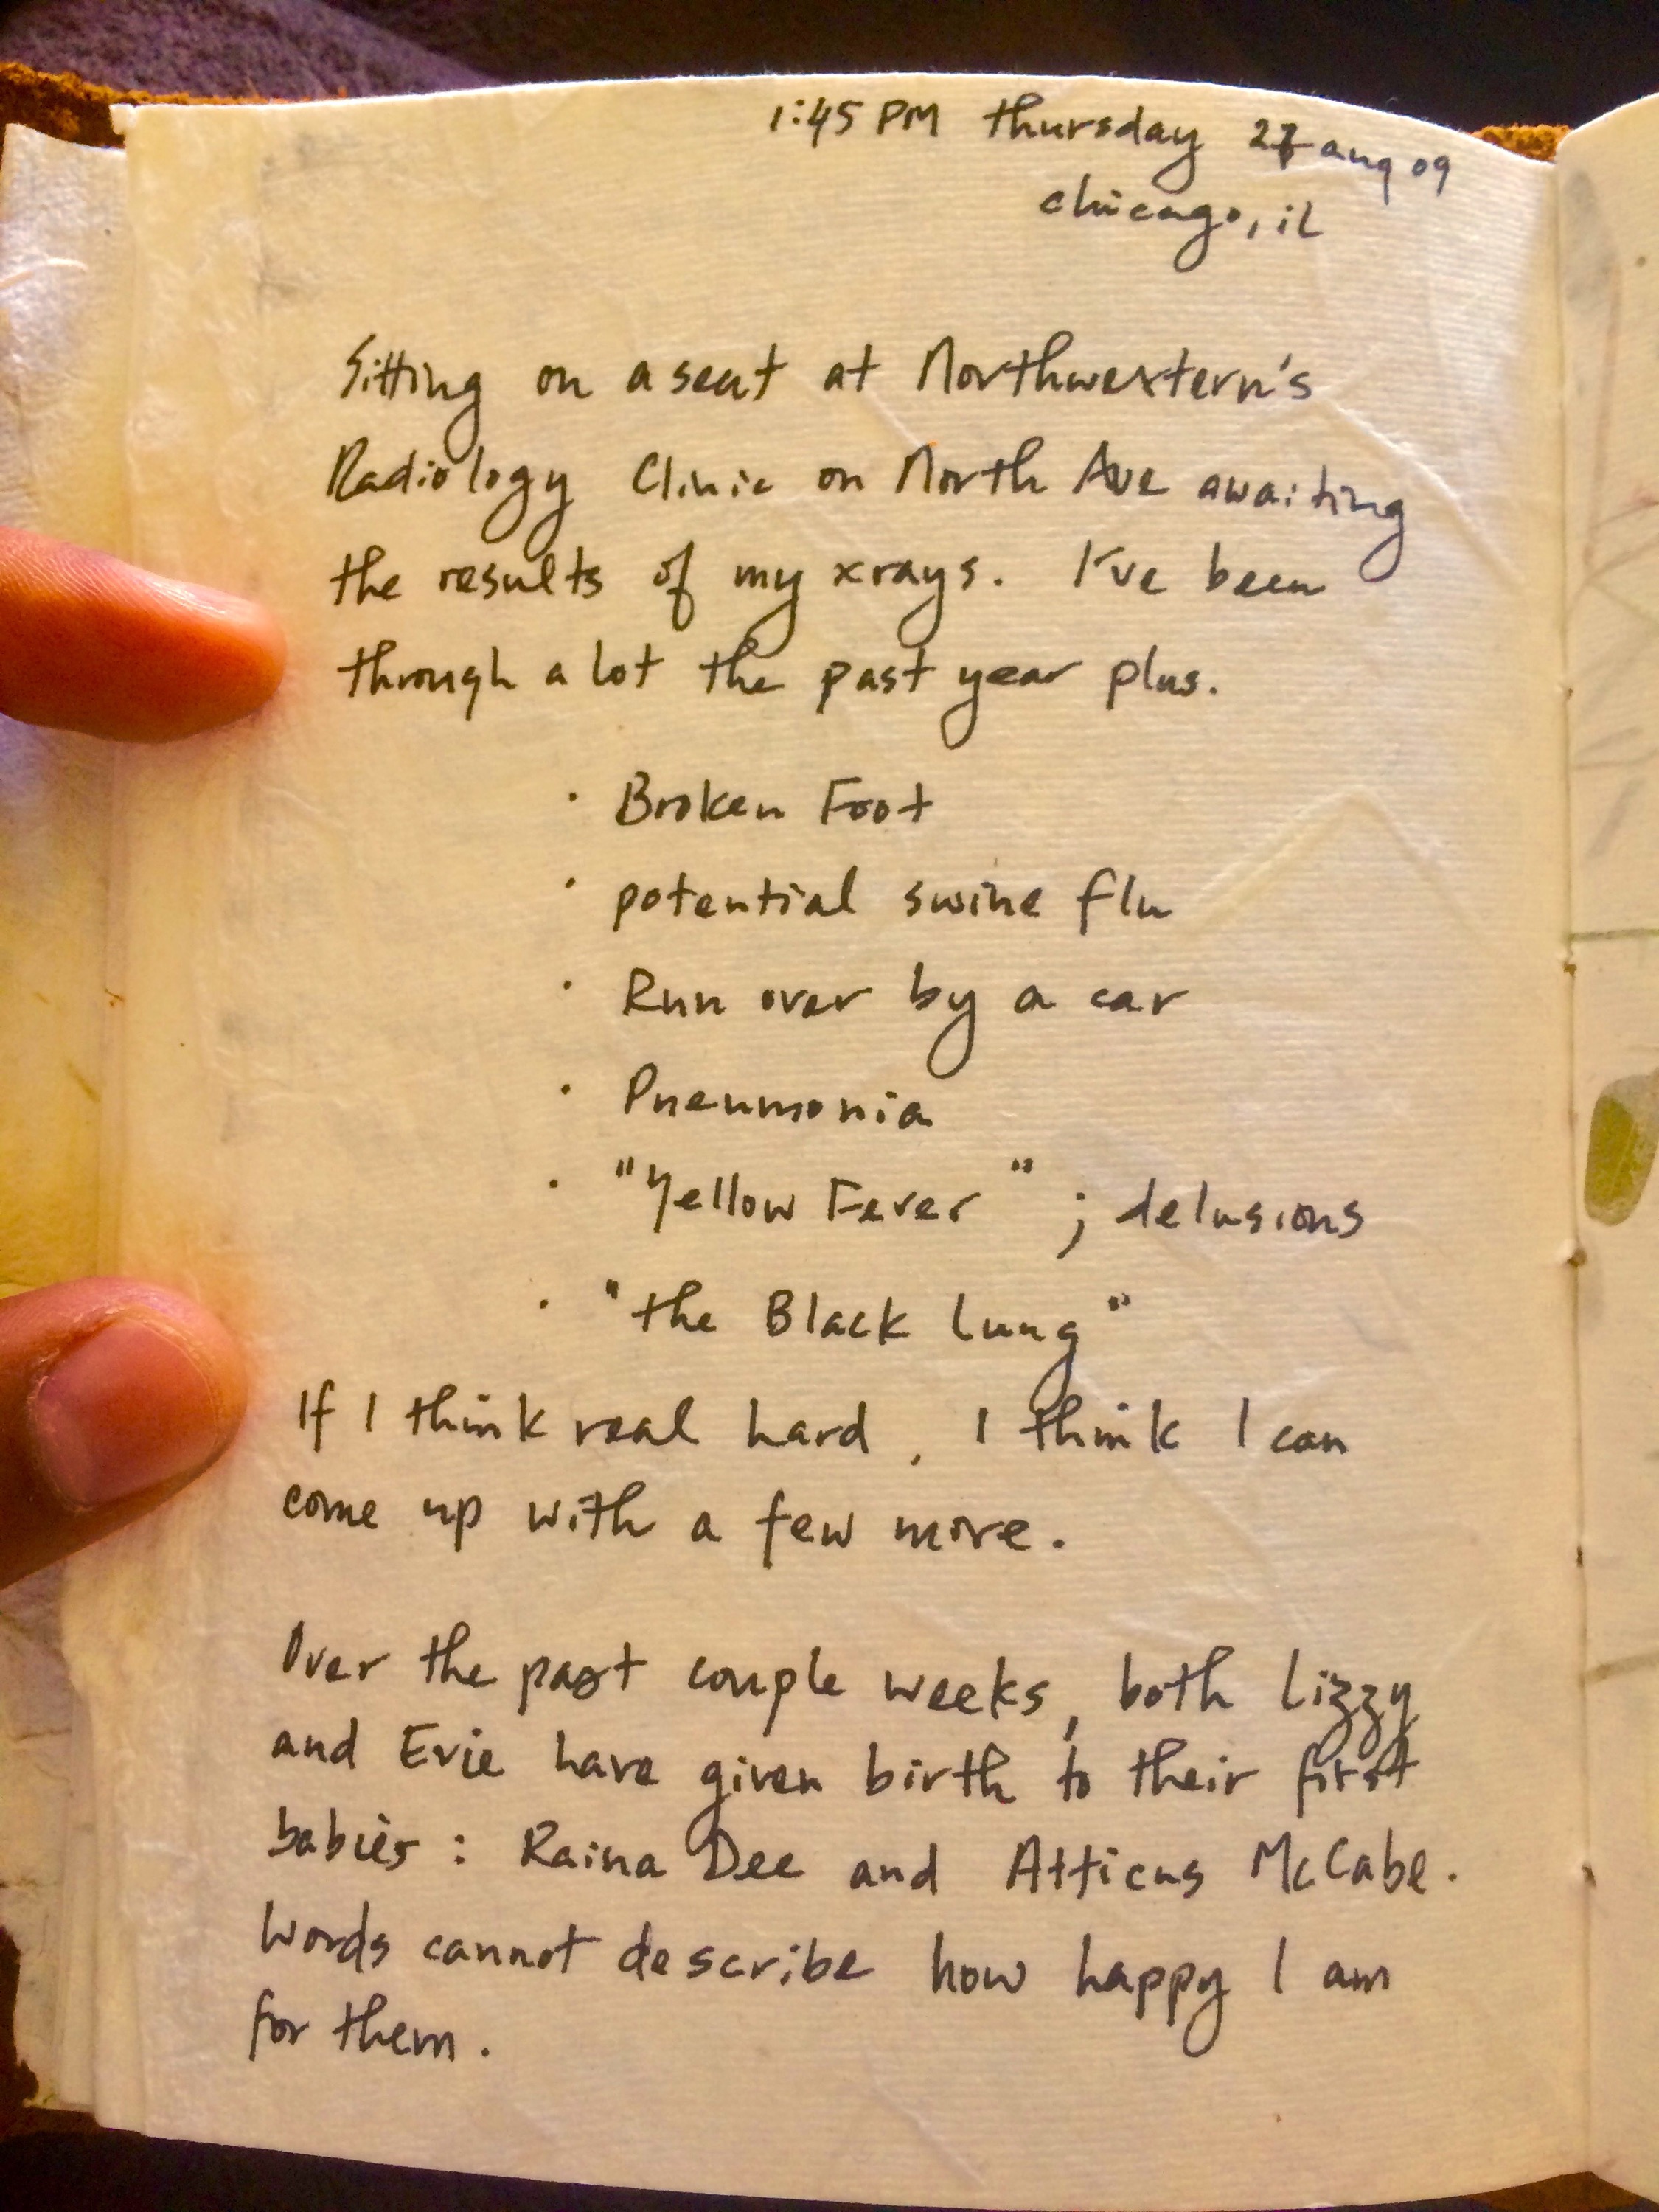 1:45 PM thursday 27 aug 09
chicago, il
Sitting on a seat at Northwestern's
Radiology Clinic on North Ave awaiting
the results of my xrays. I've been
through a lot the past year plus.
· Broken Foot
· potential swine flu
· Run over by a car
· Pneumonia
· "Yellow Fever" ; delusions
· "the Black Lung"
If I think real hard, I think I can
come up with a few more.
Over the past couple weeks, both Lizzy
and Evie have given birth to their first
babies: Raina Dee and Atticus McCabe.
Words cannot describe how happy I am
for them.